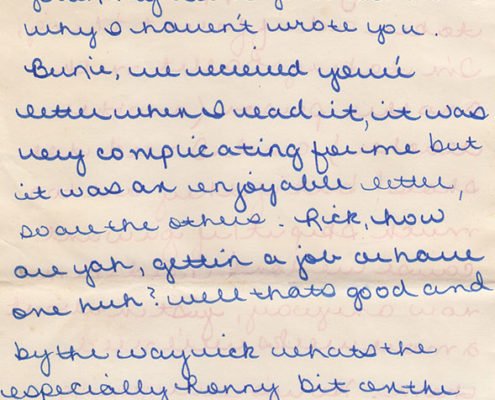 why I haven't wrote you.
Bunie, we recieved your
letter when I read it, it was
very complicating for me but
it was an enjoyable letter,
so are the others. Rick, how
are yah, gettin a job or have
one huh? well thats good and
by the way rick whats the
especially Ronny bit on the